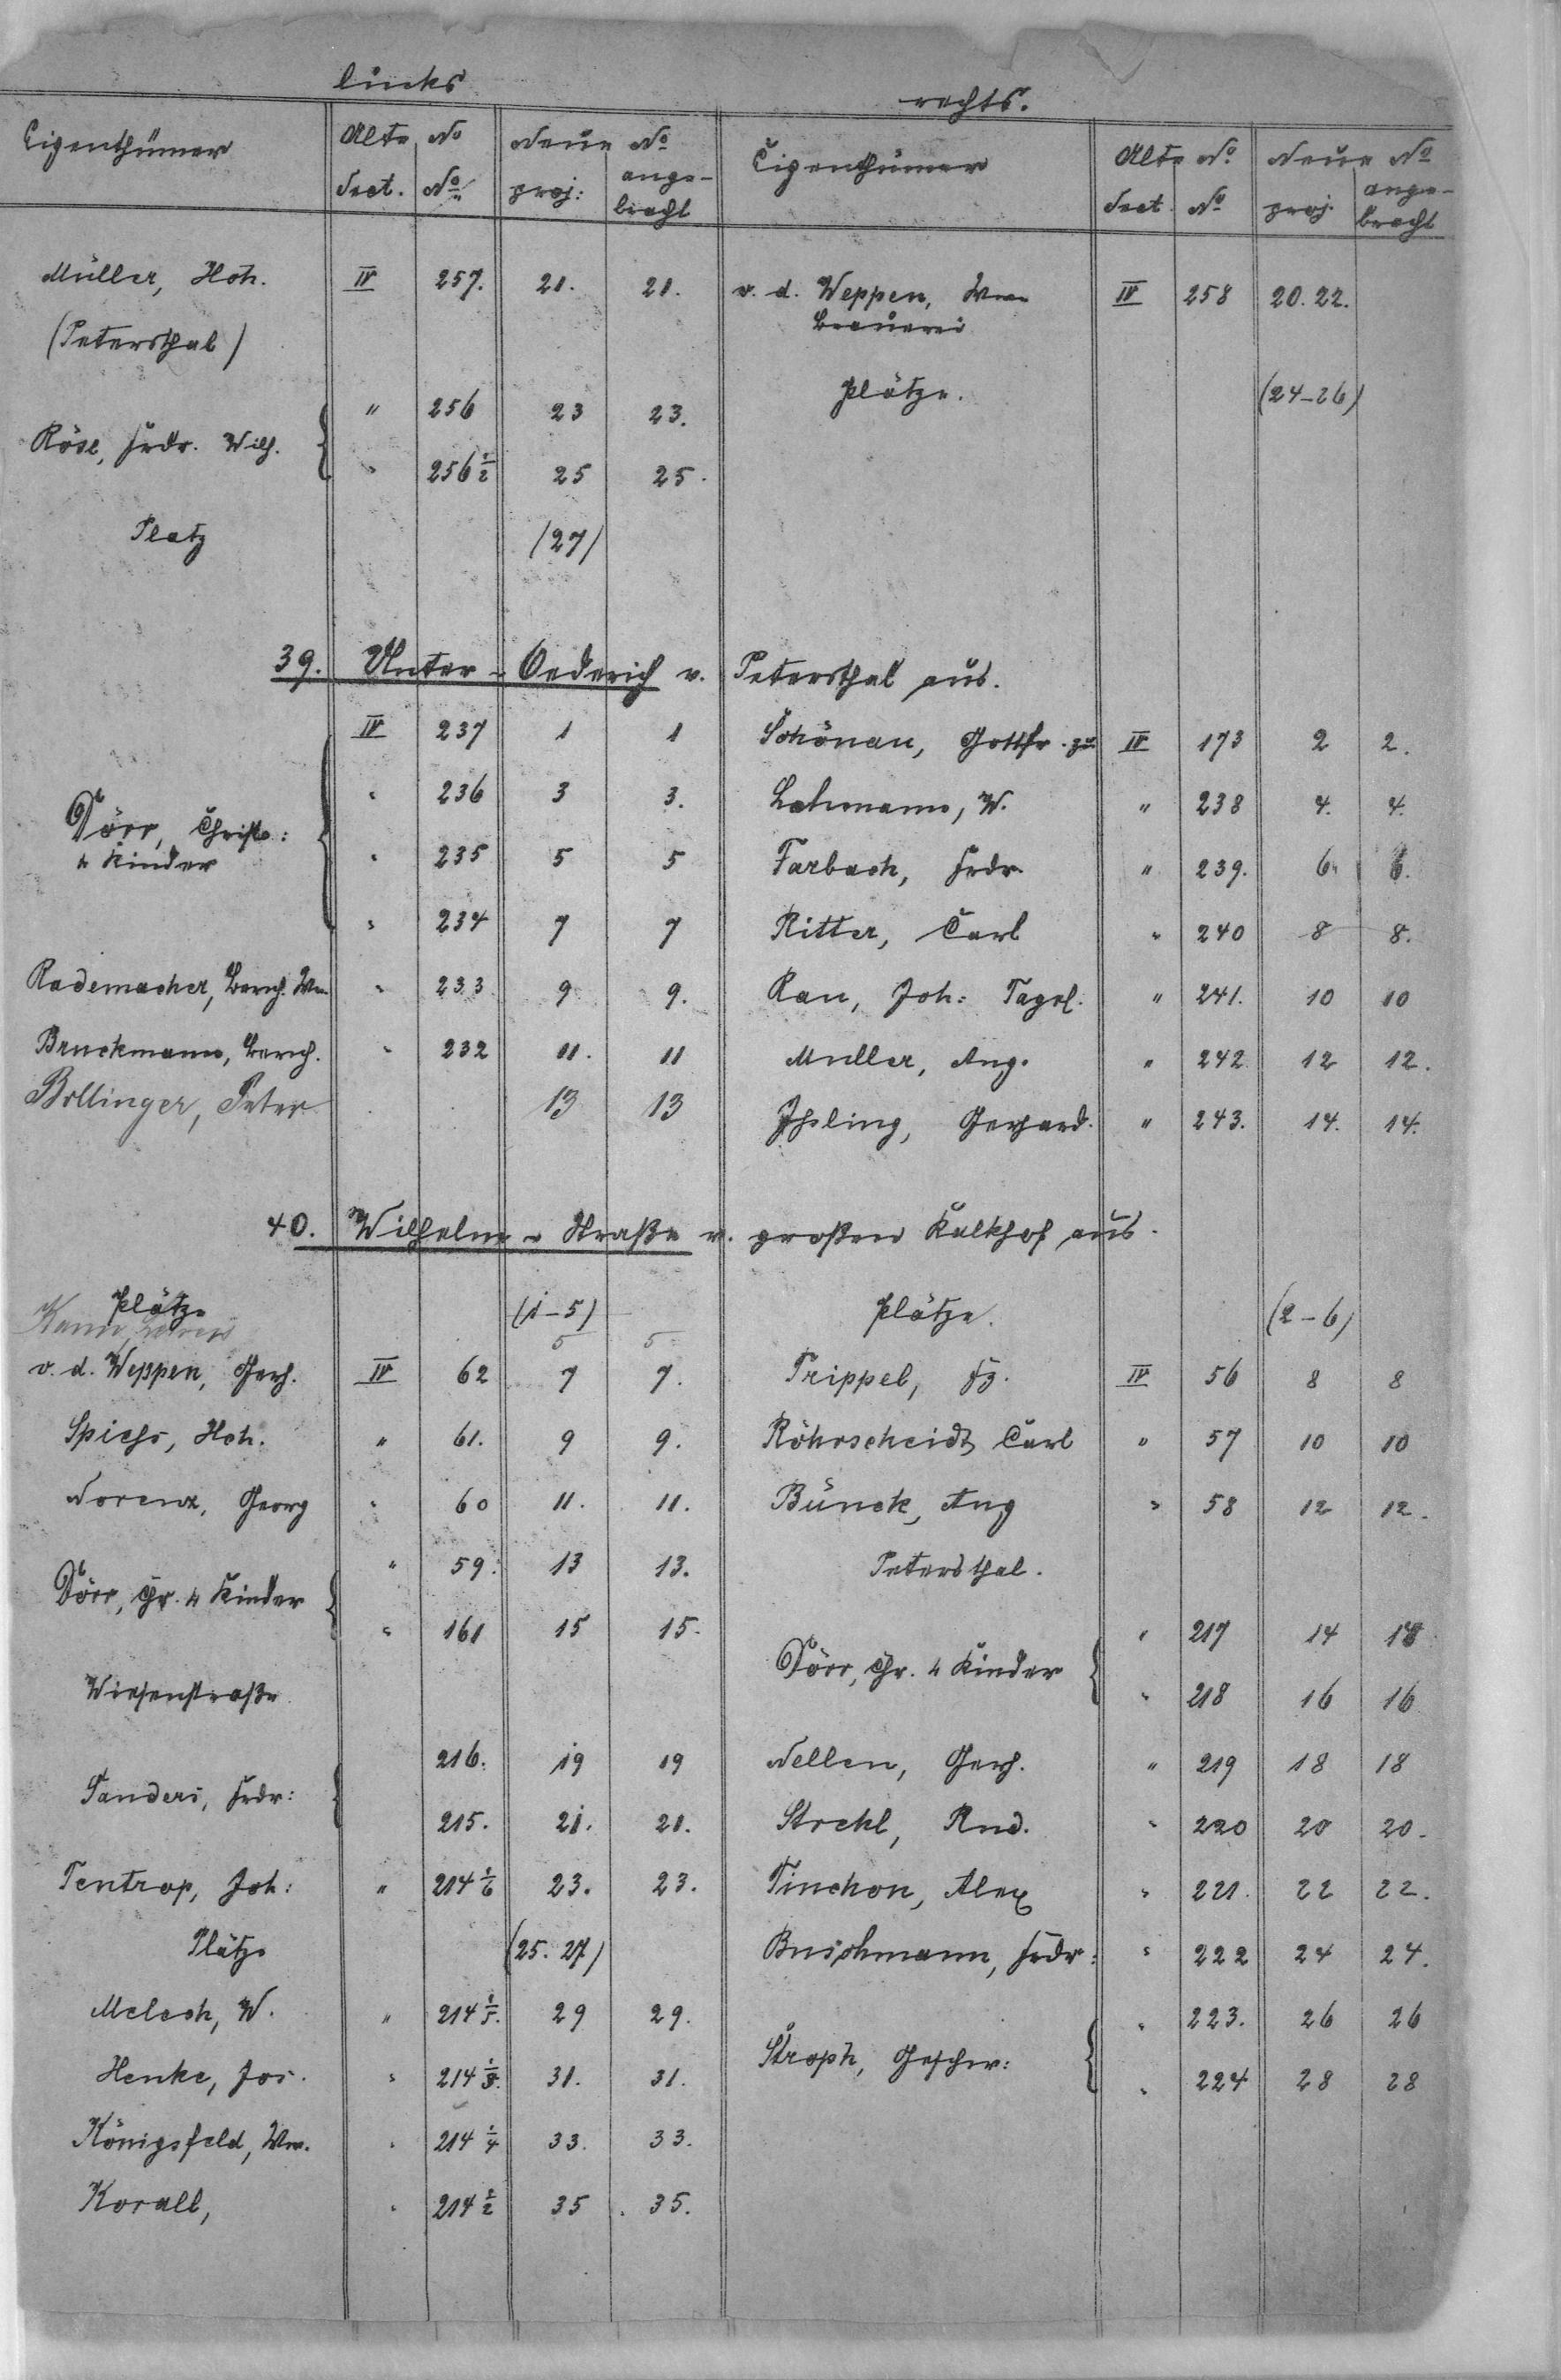 links
rechts.
Eigenthümer Alte No Neue No Eigenthümer Alte No. Neue No
Sect. No proj: ange-bracht Sect. No proj. ange-bracht
Müller, Hch. IV 257. 21. 21. v. d. Weppen, Wwe IV 258 20. 22.
(Petersthal) Brauerei
Plätze. (24-26)
Röse, Frdr. Wilh. { " 256 23 23.
" 256 1/2 25 25.
Platz (27)
39. Unter-Oederich v. Petersthal aus.
IV 237 1 1 Schönau, Gottfr. zu IV 173 2 2.
Dörr, Christ: 4 Kinder { " 236 3 3. Lohmann, W. " 238 4. 4.
" 235 5 5 Farbach, Frdr. " 239. 6. 6.
" 234 7 7 Ritter, Carl " 240 8 8.
Rademacher, Bernh. Ww. " 233 9 9. Rau, Joh: Tagel. " 241. 10 10
Bruckmann, Bernh. " 232 11. 11 Muller, Aug. " 242 12 12.
Bollinger, Peter 13 13 Ihsling, Gerhard. " 243. 14. 14.
40. Wilhelm-Straße v. großen Kalkhof aus.
Plätze (1-5) Plätze. (2-6)
5 5
v. d. Weppen, Gerh. IV 62 7 7. Trippel, Fz. IV 56 8 8
Spiehs, Hch. " 61. 9 9. Röhrscheidt, Carl " 57 10 10
Lorenz, Georg " 60 11. 11. Bünck, Aug " 58 12 12.
Dörr, Chr. 4 Kinder { " 59. 13 13. Petersthal.
" 161 15 15. Dörr, Chr. 4 Kinder { " 217 14 14
Wiesenstraße " 218 16 16
Sanders, Frdr: { 216. 19 19 Nellen, Gerh. " 219 18 18
215. 21. 21. Strehl, Rud. " 220 20 20.
Tentrop, Joh: " 214 1/6 23. 23. Tinchon, Alex " 221. 22 22.
Plätze (25. 27) Buschmann, Frdr: " 222 24 24.
Melech, W. " 214 1/5. 29 29. Stroph, Geschw: { " 223. 26 26
Henke, Jos. " 214 1/3. 31. 31. " 224 28 28
Königsfeld, Ww. " 214 1/4 33. 33.
Korall, " 214 1/2 35 35.